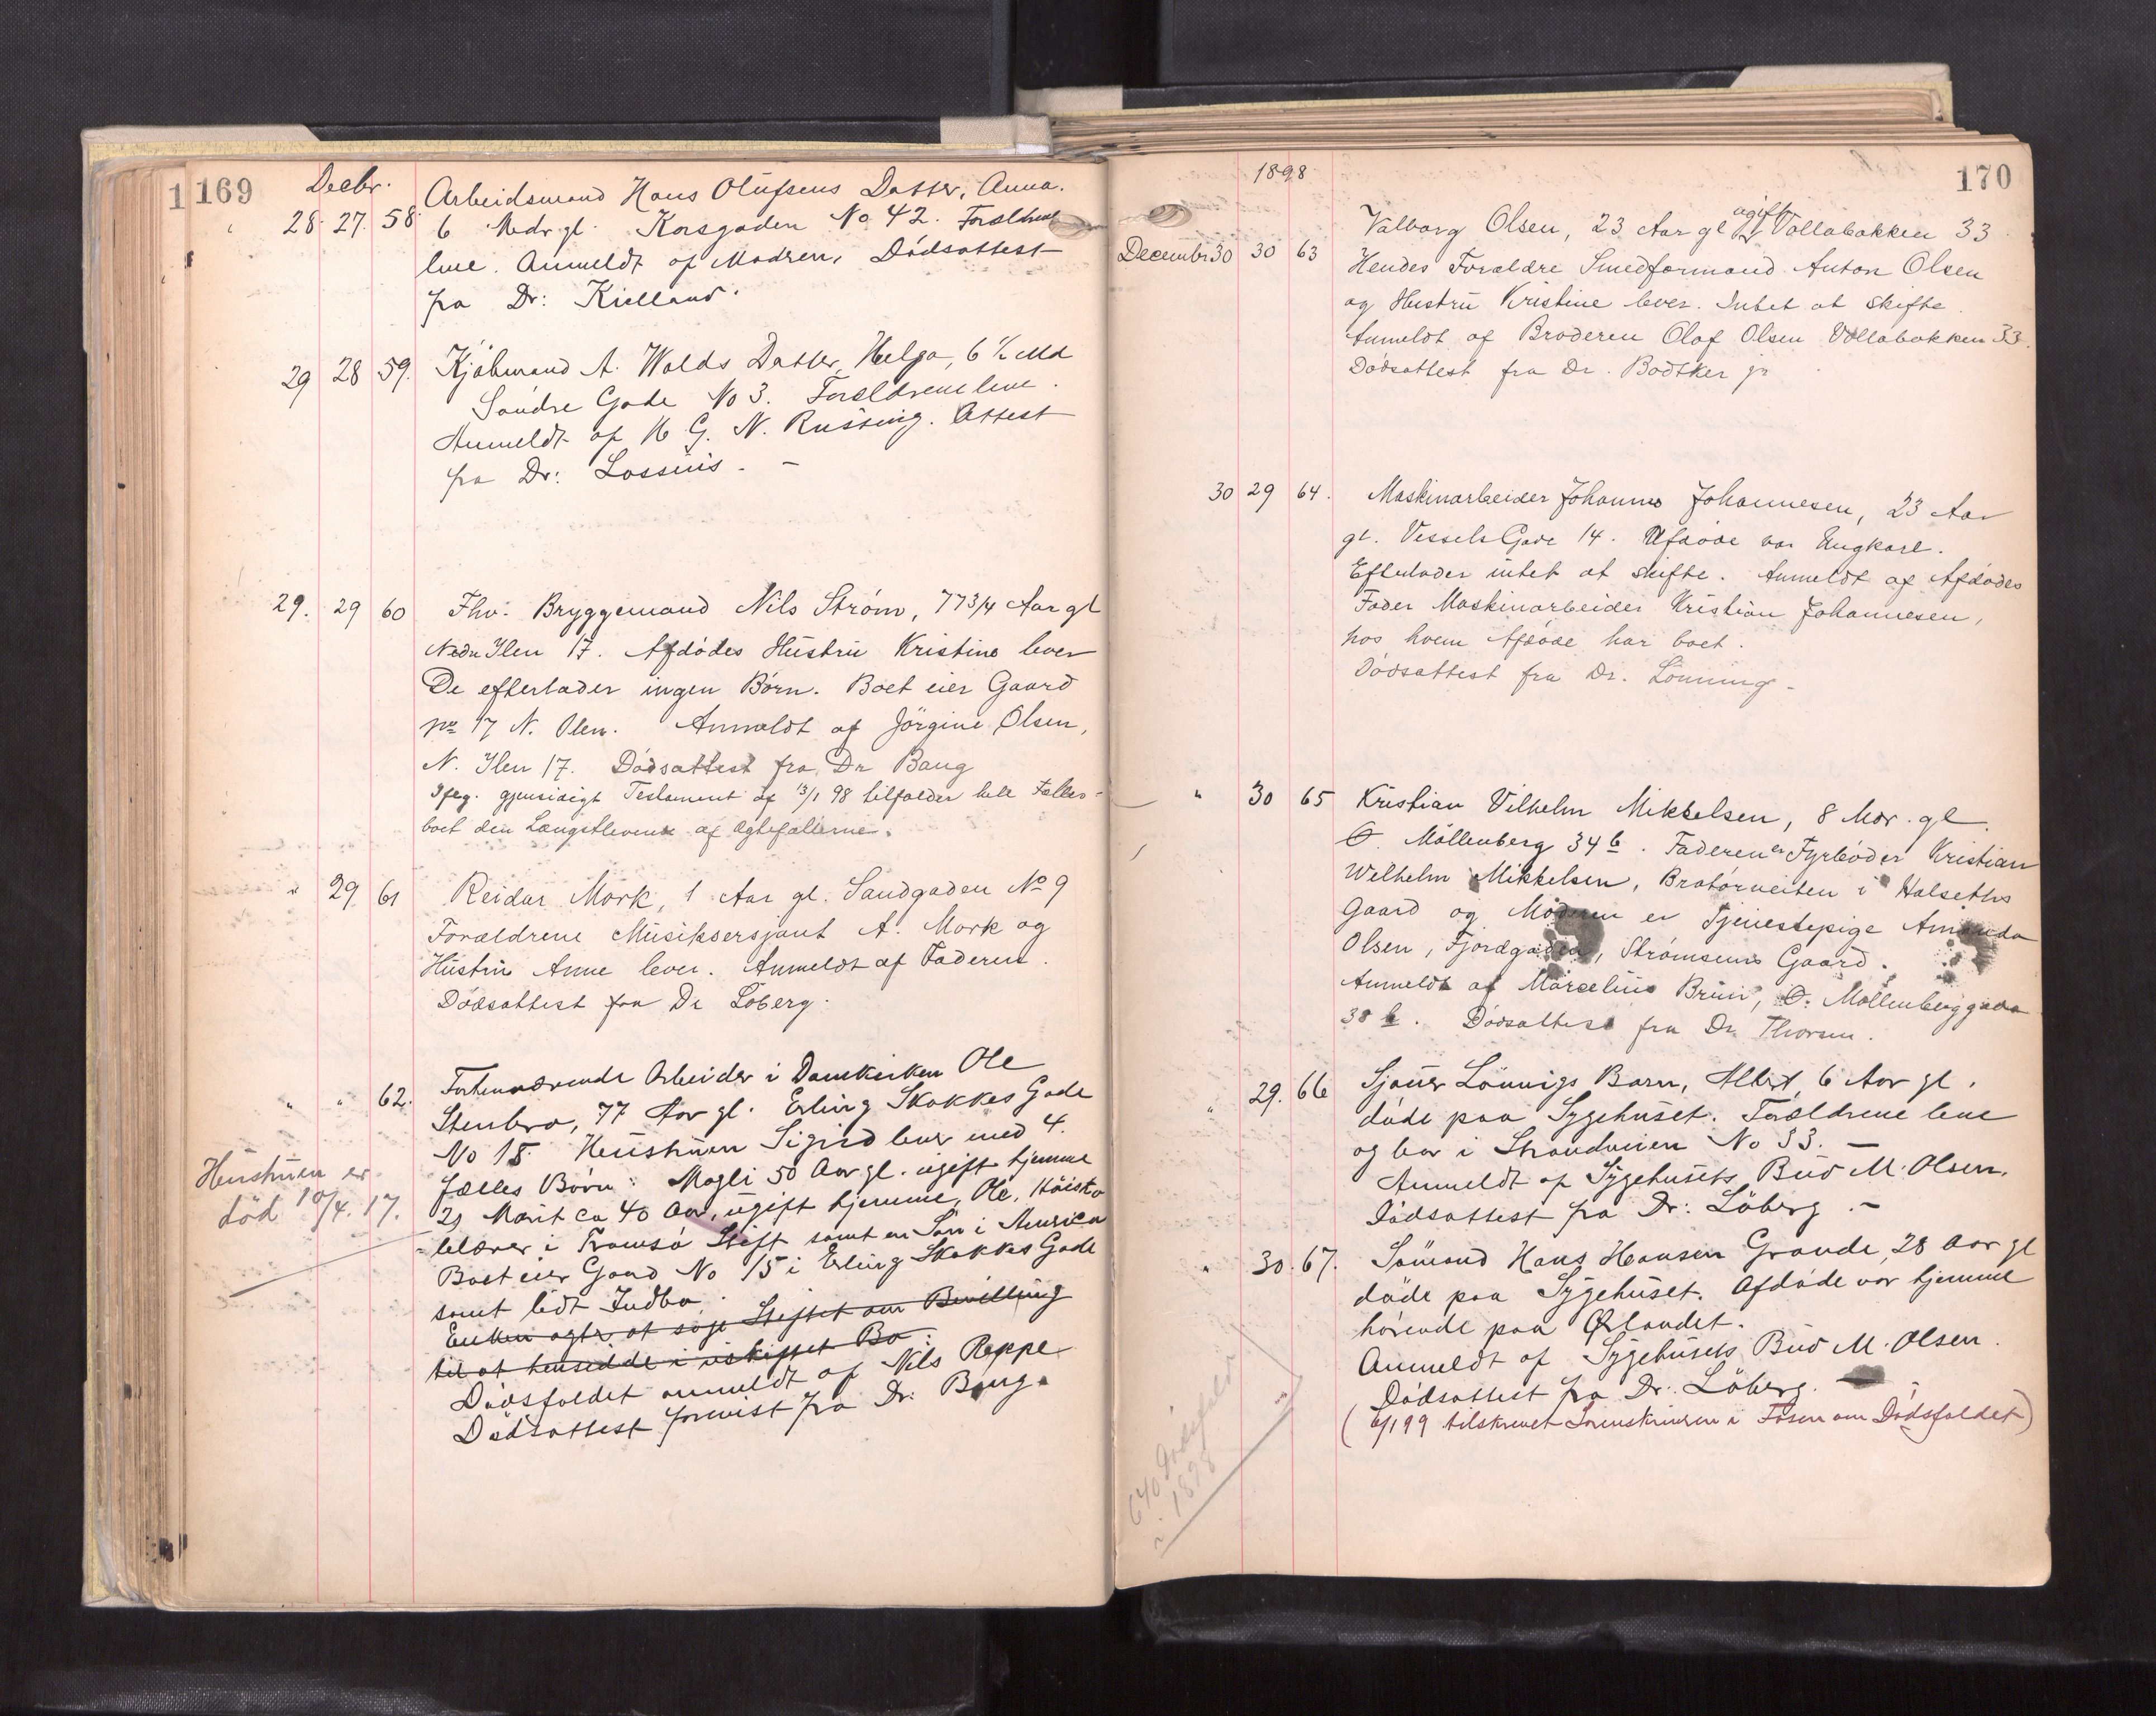 169
Decbr.
Arbeidsmand Hans Olufsens Datter, Anna.
28. 27. 58 6 Mdr gl. Korsgaden No 42. Forældrene
leve. Anmeldt af Modren, Dödsattest
fra Dr: Kielland.
29 28 59. Kjøbmand A. Wolds Datter, Helga, 6 ½ Md
Söndre Gade No 3. Forældrene leve.
Anmeldt af H G. N. Russing. Attest
fra Dr: Lossius. –
29. 29 60 Fhv. Bryggemand Nils Strøm, 77 3/4 Aar gl
Nedre Ilen 17. Afdødes Hustru Kristine lever
De efterlader ingen Børn. Boet eier Gaard
No 17 N. Ilen. Anmeldt af Jörgine Olsen,
N. Ilen 17. Dödsattest fra Dr Bang
Ifлg. gjensidigt Testament af 13/1 98 tilfalder hele Fælles-
boet den Længstlevende af Ægtefællerne.
" 29 61 Reidar Mork, 1 Aar gl. Sandgaden No 9
Forældrene Musiksersjant A. Mork og
Hustru Anne lever. Anmeldt af Faderen.
Dødsattest fra Dr Löberg.
" " 62. Forhenværende Arbeider i Domkirken Ole
Stenbro, 77 Aar gl. Erling Skakkes Gade
No 15. Hustruen Sigrid lever med 4.
fælles Børn: Magli 50 Aar gl. ugift hjemme
2) Marit ca 40 Aar, ugift hjemme, Ole, Höisko
-lelærer i Tromsö Stift samt en Sön i America
Boet eier Gaard No 15 i Erling Skakkes Gade
samt lidt Indbo.
Enken agter at søge Stiftet om Bevilling
til at hensidde i uskiftet Bo:
Dödsfaldet anmeldt af Nils Reppe
Dødsattest forevist fra Dr. Bang.
Hustruen er
död 10/4. 17.
1898
170
Valborg Olsen, 23 Aar gl ugift Vollabakken 33
Decembr 30 30 63 Hendes Forældre Smedformand Anton Olsen
og Hustru Kristine lever. Intet at skifte.
Anmeldt af Broderen Olaf Olsen Vollabakken 33.
Dödsattest fra Dr. Bødtker jr
30 29 64. Maskinarbeider Johannes Johannesen, 23 Aar
gl. Vessels Gade 14. Afdöde var Ungkarl.
Efterlader intet at skifte. Anmeldt af Afdødes
Fader Maskinarbeider Kristian Johannesen,
hos hvem Afdöde har boet.
Dödsattest fra Dr. Lönning –
" 30 65 Kristian Vilhelm Mikkelsen, 8 Mdr. gl.
Ø. Möllenberg 34 b. Faderen er Fyrbøder Kristian
Wilhelm Mikkelsen, Bratörveiten i Halseths
Gaard og Moderen er Tjenestepige Amanda
Olsen, Fjordgaden, Strømsens Gaard.
Anmeldt af Marcelius Bruun, Ø. Möllenberggade
38 b. Dödsattest fra Dr. Thorsen.
" 29. 66 Sjouer Lönnigs Barn, Albert, 6 Aar gl.
döde paa Sygehuset. Forældrene leve
og bor i Strandveien No 33. –
Anmeldt af Sygehusets Bud M. Olsen.
Dödsattest fra Dr: Löberg. –
" 30. 67. Sömand Hans Hansen Grande, 28 Aar gl
döde paa Sygehuset. Afdøde var hjemme
hörende paa Ørlandet.
Anmeldt af Sygehusets Bud M. Olsen.
Dödsattest fra Dr. Löberg.
(6/1 99 tilskrevet Sorenskriveren i Fosen om Dödsfaldet)
640 Dödsfald
i 1898